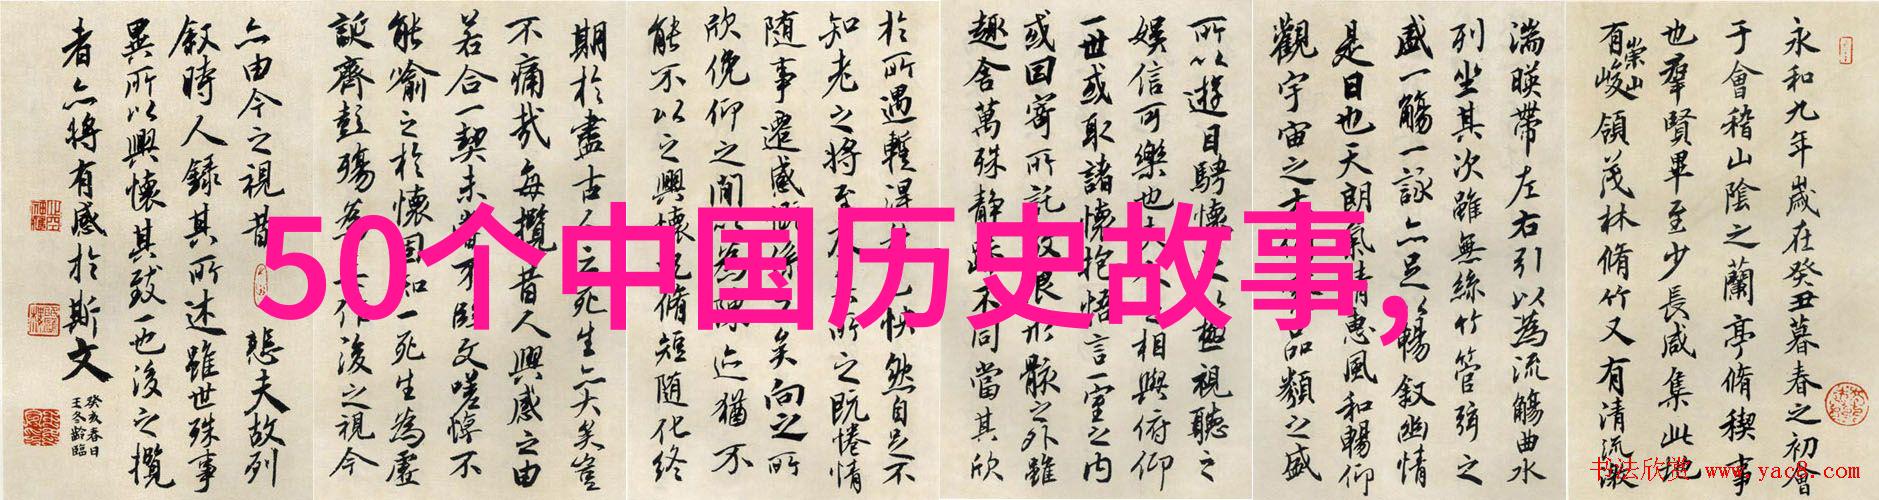 永和九年歲在癸丑暮春之初會
于會稽山陰之蘭亭脩稧事
也羣賢畢至少長咸集此地
有崇山峻領茂林脩竹又有清流激
湍暎帶左右引以為流觴曲水
列坐其次雖無絲竹管弦之
盛一觴一詠亦足以暢叙幽情
是日也天朗氣清惠風和暢仰
觀宇宙之大品類之盛
所以遊目騁懷極視聽之
娛信可樂也夫人之相與俯仰
一世或取諸懷抱悟言一室之內
或因寄所託放浪形骸之外雖
趣舍萬殊靜躁不同當其欣
於所遇暫得於己快然自足不
知老之將至及其所之既惓情
隨事遷感慨係之矣向之所
欣俛仰之間以為陳迹猶不
能不以之興懷況脩短隨化終
期於盡古人云死生亦大矣豈
不痛哉每攬昔人興感之由
若合一契未嘗不臨文嗟悼不
能喻之於懷固知一死生為虛
誕齊彭殤為妄作後之視今
亦由今之視昔悲夫故列
叙時人錄其所述雖世殊事
異所以興懷其致一也後之攬
者亦將有感於斯文
癸亥春日
王冬齡臨
50个中国历史故事,
书法欣赏 www.yac8.com